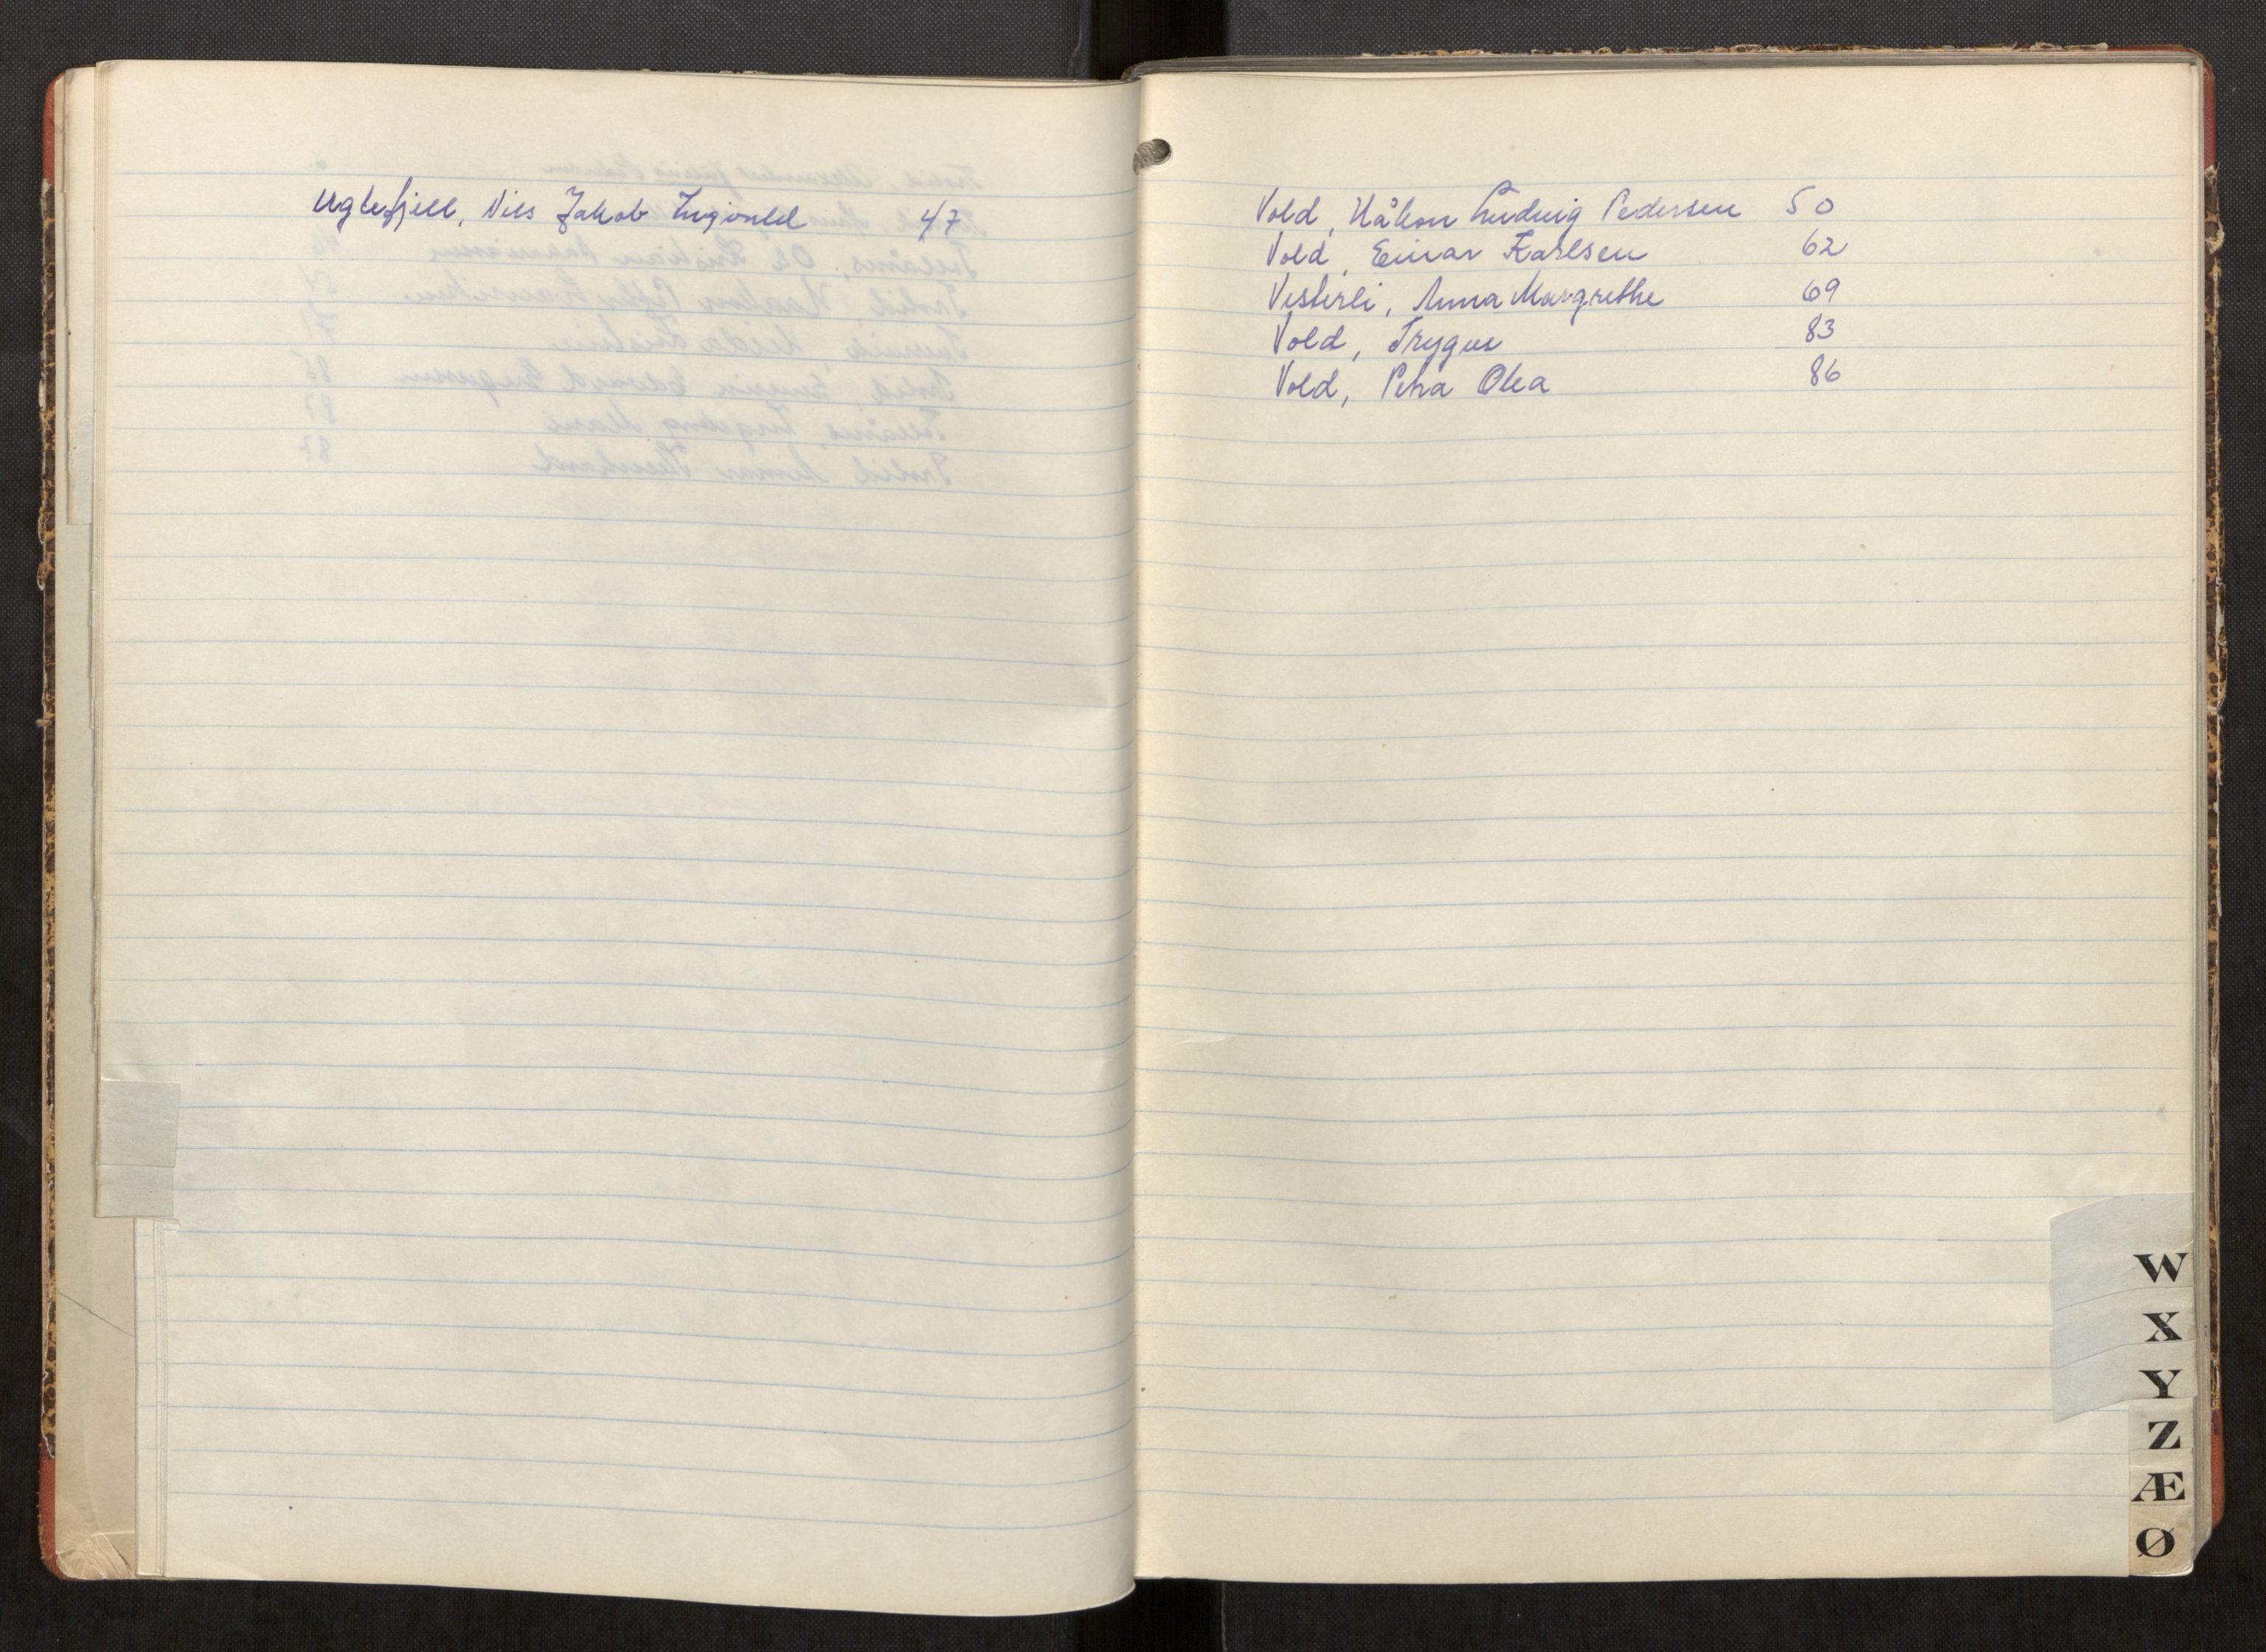 Uglefjell, Nils Jakob Ingvald 47
Vold, Håkon Ludvig Pedersen 50
Vold, Einar Karlsen 62
Vesterli, Anna Margrethe 69
Vold, Trygve 83
Vold, Petra Olea 86
W
X
Y
Z
Æ
Ø